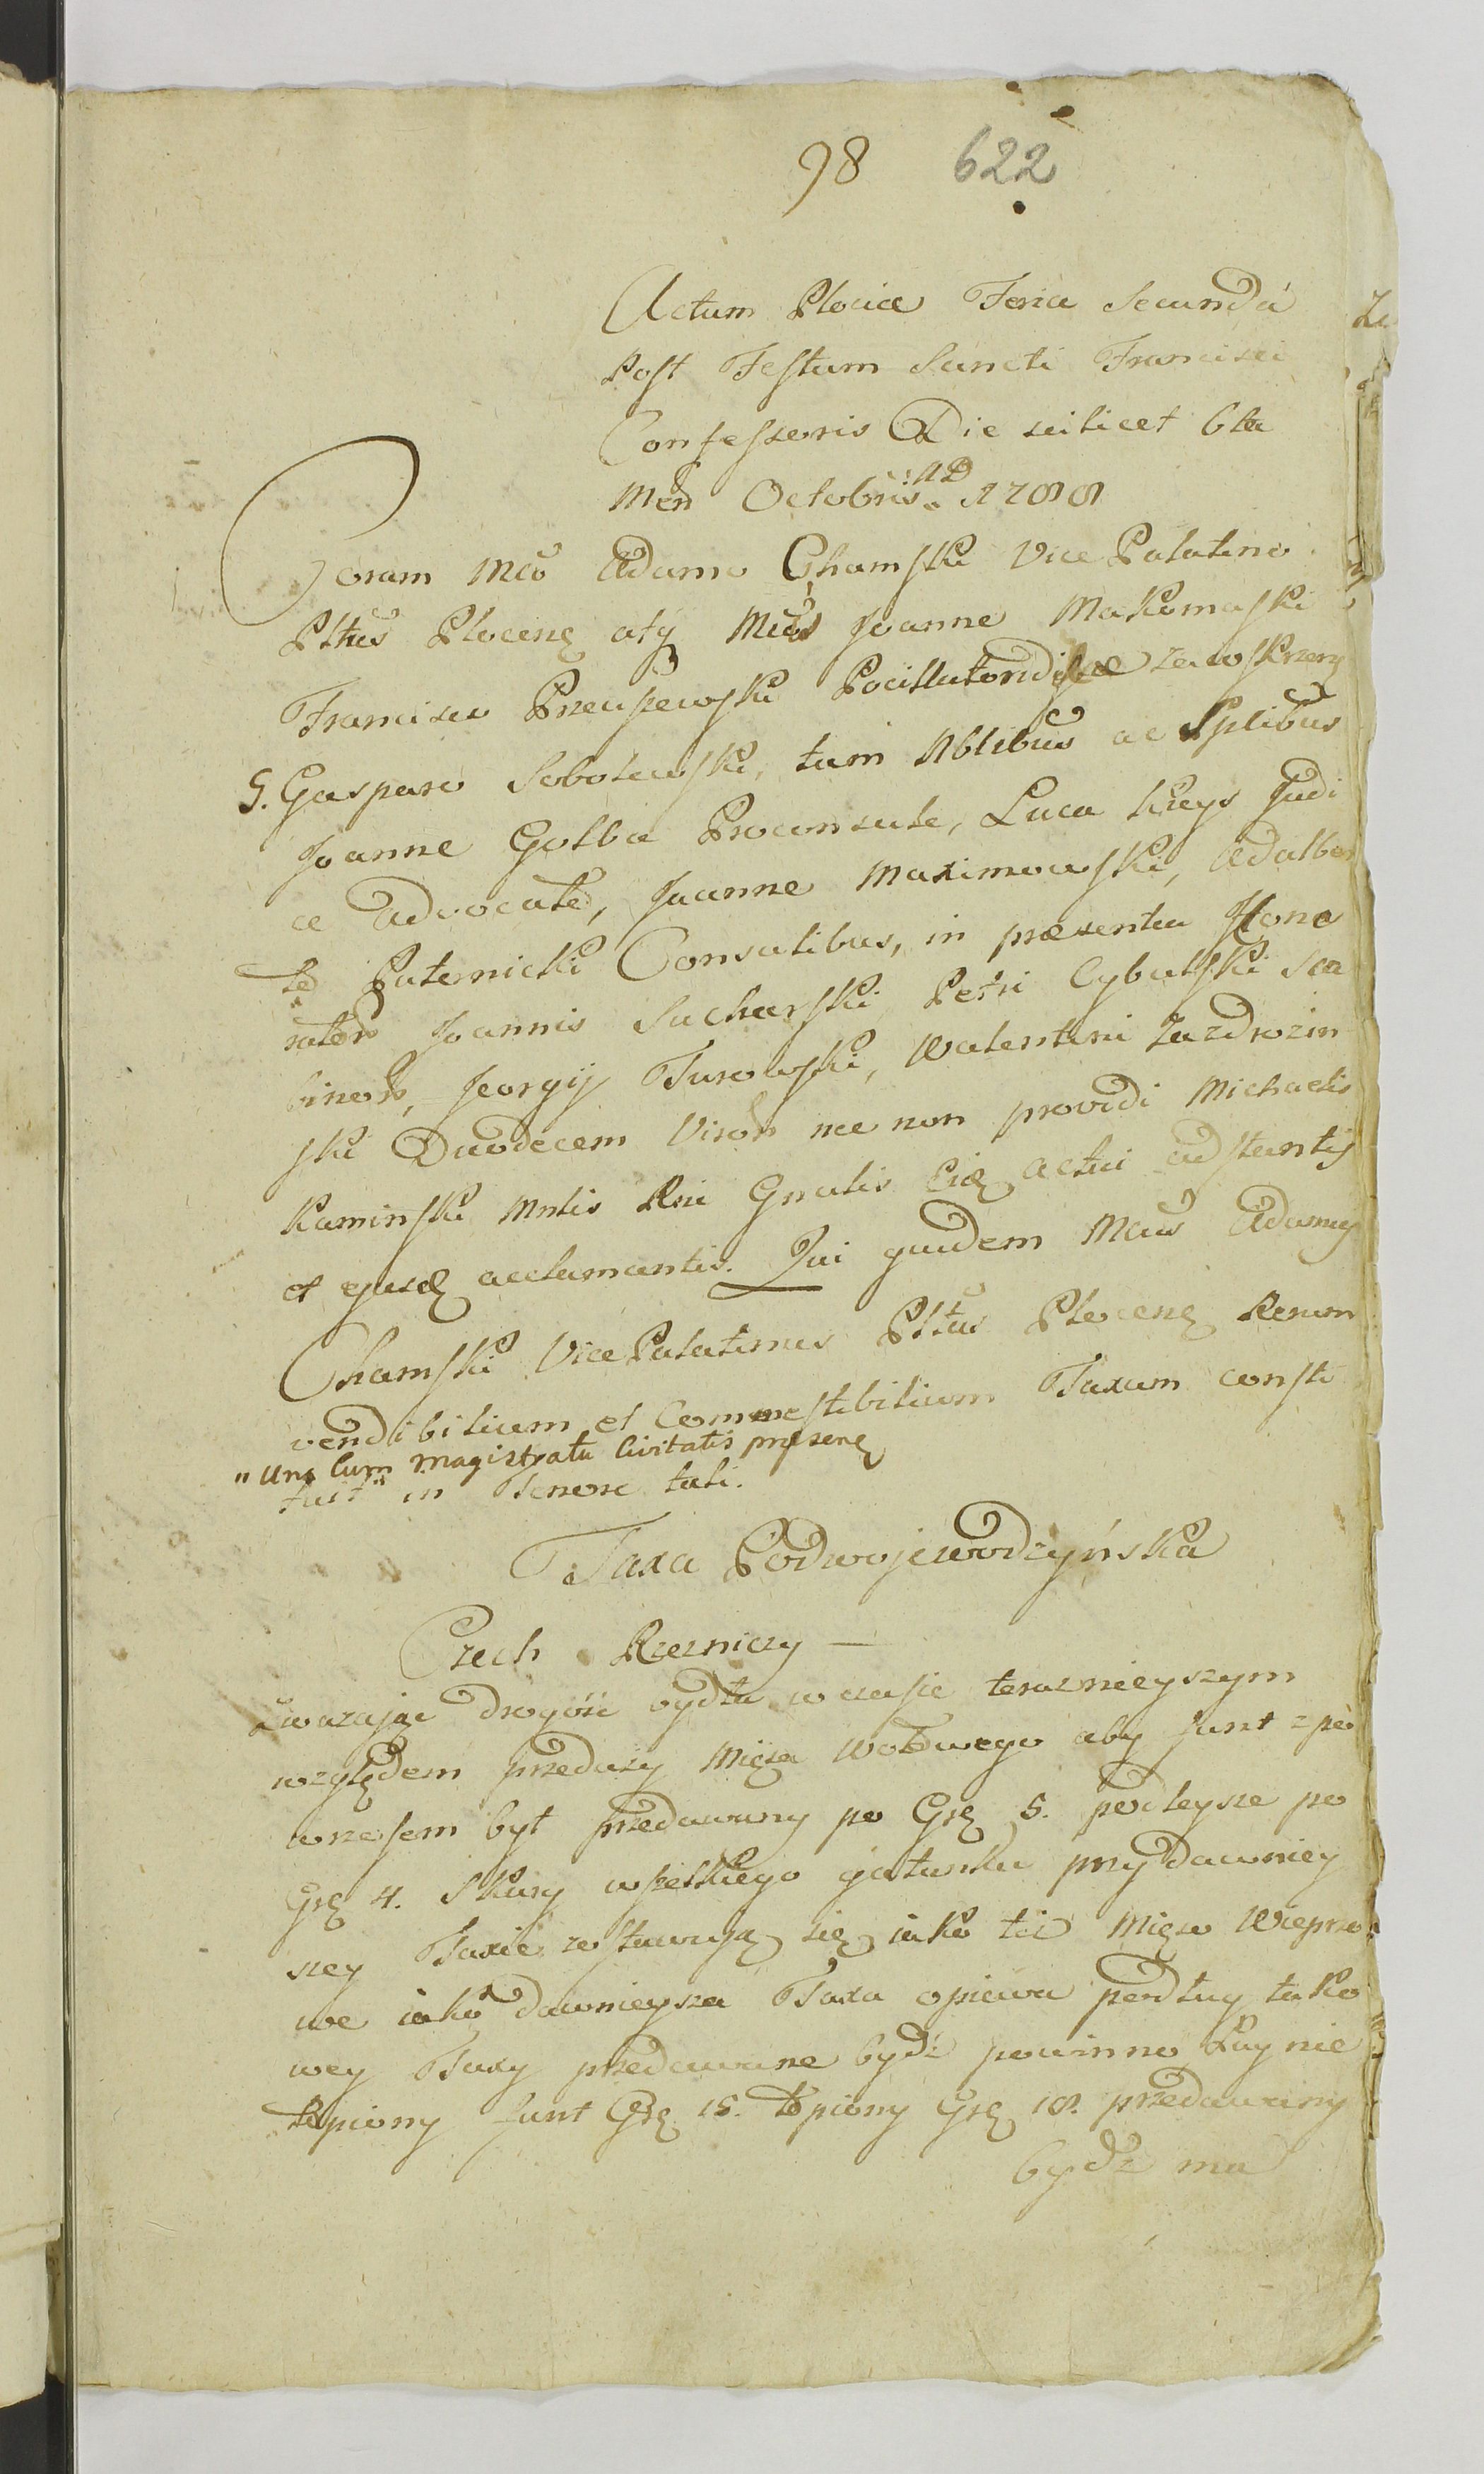 98 622
Actum Plociæ Feria Secundá
Post Festum Sancti Francisci
Confessoris Die scilicet 6ta
Men Octobris A D 1788
Coram Mco Adamo Chamski Vice Palatino
Pltus Plocens atq Mcis Joanne Makomaski
Francisco Przeciszewski Pocillatoridiſſæ Zawskrzeń
G. Gasparo Sobolewski, tum Nblibus ac Spblibus
Joanne Golba Proconsule, Luca Kreys Judi
ce Advocate, Joanne Maximowski, Adalber
to Paternicki Consulibus, in præsentia Hono
rator Joannis Sucharski Petri Cybulski Sca
binor, Jeorgij Turowski, Walentini Zazdrozin
ski Duodecem Viror nec non providi Michaelis
Kaminski Mntis Rni Gnalis Eidq actui adstantis
et ejusdq acclamantis. Qui quidem Mcus Adamus
Chamski Vice Palatinus Pltus Plocens Rerum
vendibilium et Commestibilium Taxam consti
"una Cum Magistratu Civitatis præsens
tuit" in Tenore tali.
Taxa Podwojewodzyńska
Czech Rzezniczy —
Zwazając drogość bydła w czasie teraznieyszym
względem przedazy Mięsa Wołowego aby funt z pò
wrzesem był przedawany po Grę 5. podleysze po
Grę 4. Skury wszelkiego gatunku przy dawniey
szey Taxie zostawują się iako też Mięso Wieprzo
we iako dawnieysza Taxa opiewa podług tako
wey Taxy przedawane bydź powinno Łuy nie
topiony funt Grę 15. topiony Grę 18. przedawany
bydź ma